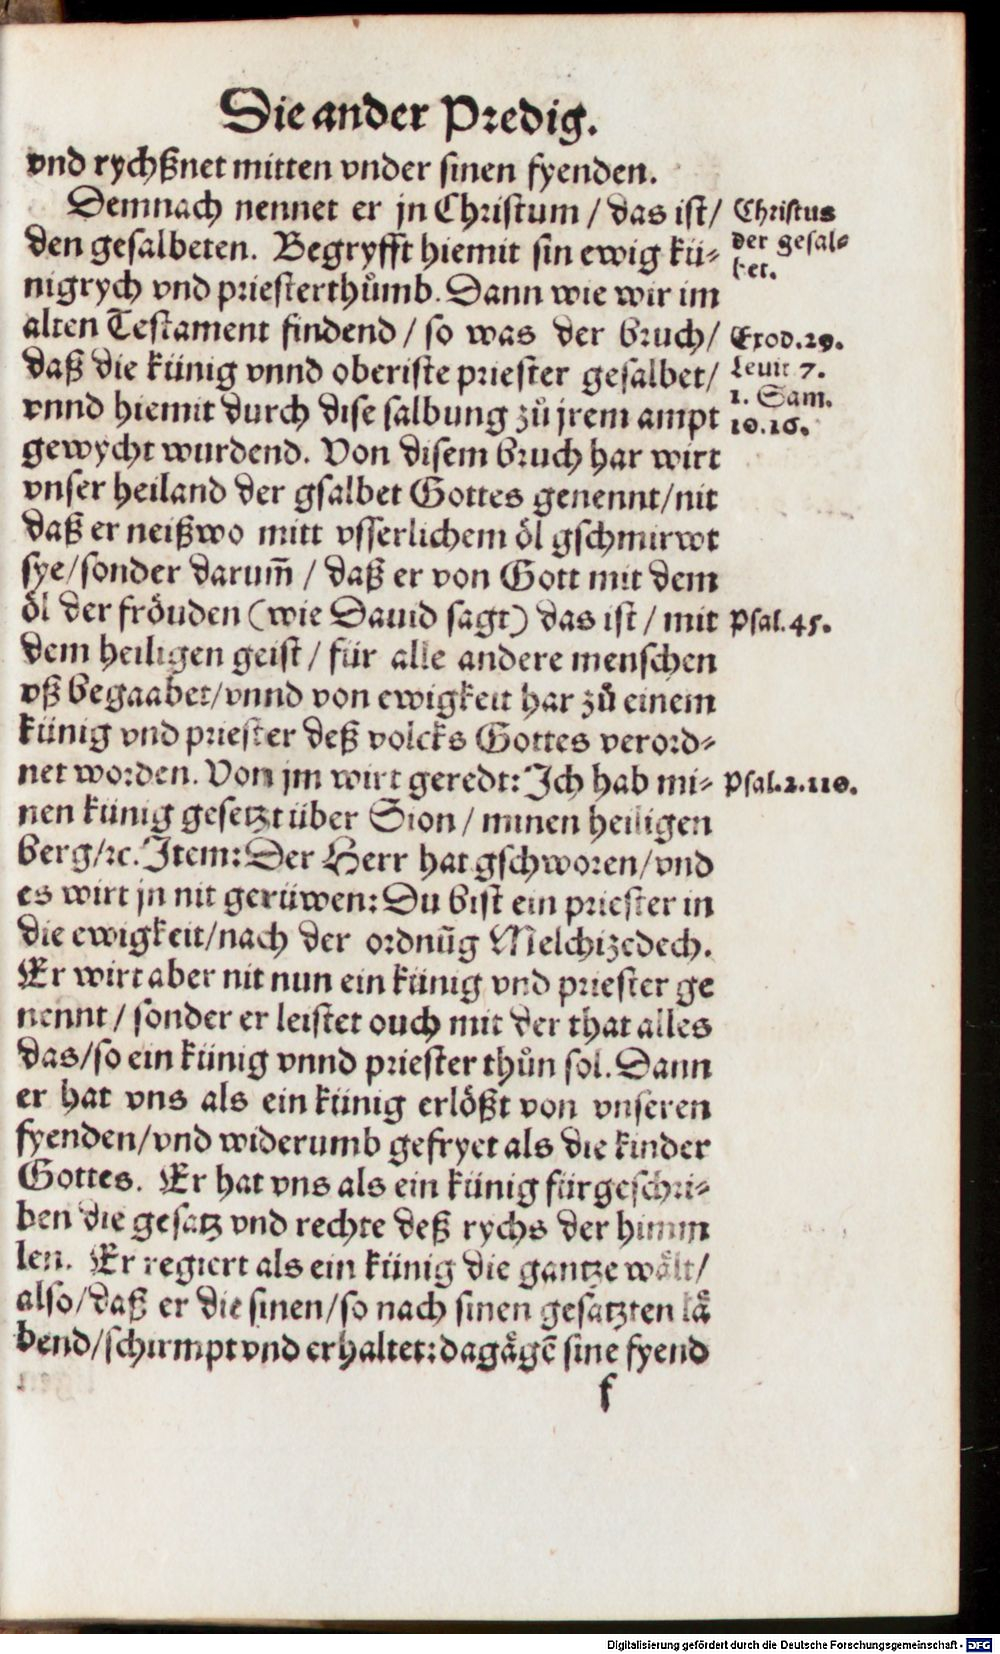 Die ander Predig.
vnd rychßnet mitten vnder sinen fyenden.
Demnach nennet er jn Christum / das ist/
den gesalbeten. Begryfft hiemit sin ewig kü-
nigrych vnd priesterthůmb. Dann wie wir im
alten Testament findend / so was der bruch/
daß die künig vnnd oberiste priester gesalbet/
vnnd hiemit durch dise salbung zů jrem ampt
gewycht wurdend. Von disem bruch har wirt
vnser heiland der gsalbet Gottes genennt/nit
daß er neißwo mitt vsserlichem öl gschmirwt
sye/sonder darum̃ / daß er von Gott mit dem
öl der fröuden (wie Dauid sagt) das ist / mit
dem heiligen geist / für alle andere menschen
vß begaabet/vnnd von ewigkeit har zů einem
künig vnd priester deß volcks Gottes verord-
net worden. Von jm wirt geredt: Ich hab mi-
nen künig gesetzt über Sion / minen heiligen
berg/ꝛc. Item: Der Herr hat gschworen/vnd
es wirt jn nit gerüwen: Du bist ein priester in
die ewigkeit/nach der ordnũg Melchizedech.
Er wirt aber nit nun ein künig vnd priester ge
nennt / sonder er leistet ouch mit der that alles
das/so ein künig vnnd priester thůn sol. Dann
er hat vns als ein künig erlößt von vnseren
fyenden/vnd widerumb gefryet als die kinder
Gottes. Er hat vns als ein künig fürgeschri-
ben die gesatz vnd rechte deß rychs der himm
len. Er regiert als ein künig die gantze wält/
also/daß er die sinen/so nach sinen gesatzten lä
bend/schirmpt vnd erhaltet: dagägẽ sine fyend
f
Christus
der gesal-
bet.
Exod.29.
Leuit 7.
1. Sam.
10.16.
Psal.45.
Psal.2.110.
Digitalisierung gefördert durch die Deutsche Forschungsgemeinschaft - DFG